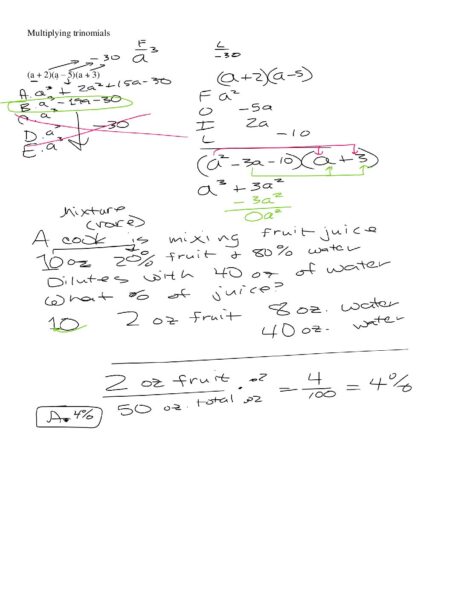 Multiplying trinomials
F L
-30 a³ -30
(a + 2)(a – 5)(a + 3)
A. a³ + 2a² + 15a - 30
B. a³ - 19a - 30
C. a³
D. a³ -30
E. a³
(a+2)(a-5)
F a²
O -5a
I 2a
L -10
(a² - 3a - 10)(a + 3)
a³ + 3a²
- 3a²
0a²
Mixture
(rare)
A cook is mixing fruit juice
10 oz 20% fruit & 80% water
Dilutes with 40 oz of water
What % of juice?
10 2 oz fruit 8 oz. water
40 oz. water
2 oz fruit · .02 = 4 = 4%
50 oz. total .02 100
A. 4%